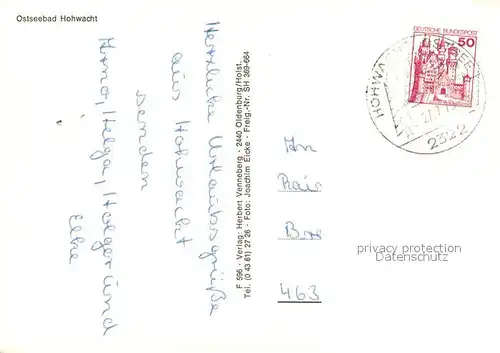 Ostseebad Hohwacht
Herzliche Urlaubsgrüße
aus Hohwacht
senden
Helga, Holger und
Elke
F 596 · Verlag: Herbert Venneberg · 2440 Oldenburg/Holst.
Tel. (0 43 61) 27 26 · Foto: Joachim Eicke · Freig.-Nr. SH 369-664
DEUTSCHE BUNDESPOST
50
HOHWA
OSTSEE
2322
An
463
privacy protection
Datenschutz